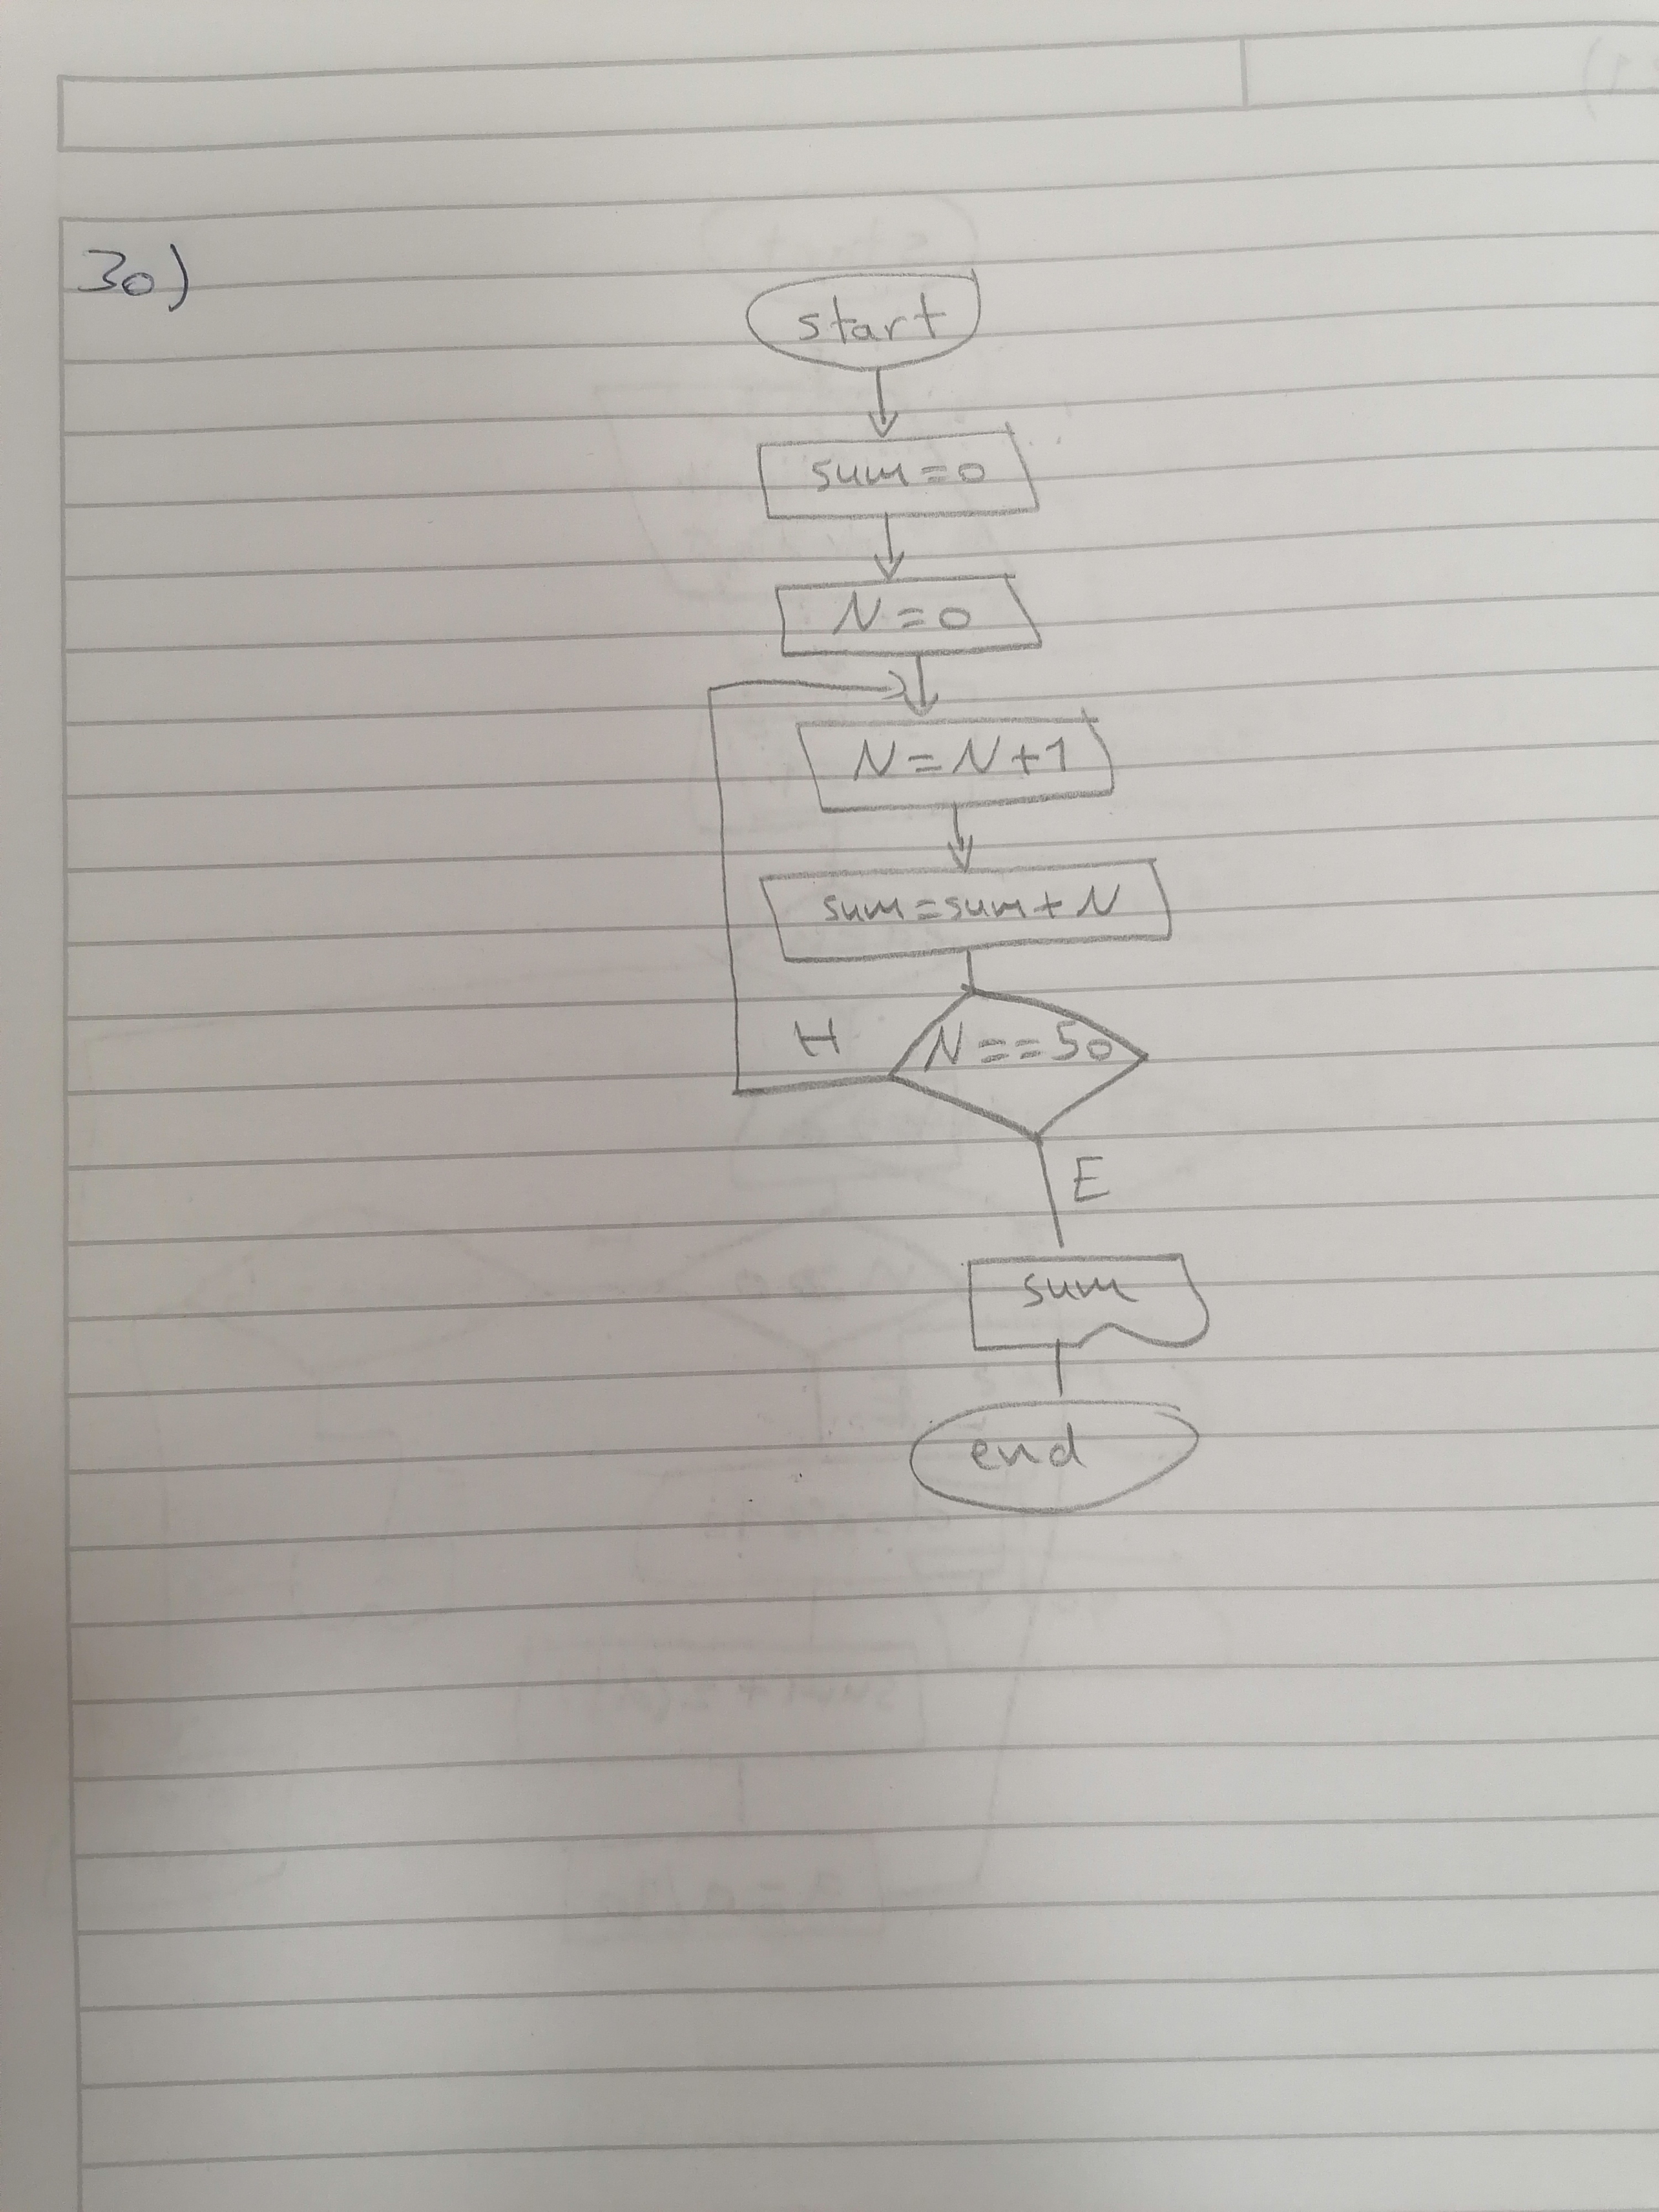 30)
start
sum=0
N=0
N=N+1
sum=sum+N
H
N==50
E
sum
end